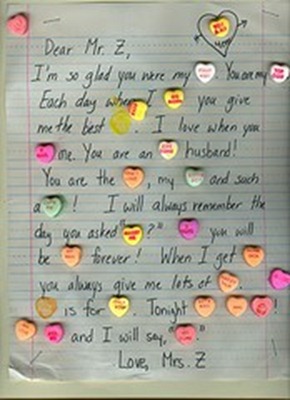 Dear Mr. Z,
I'm so glad you were my You are my
Each day when I you give
me the best . I love when you
me. You are an husband!
You are the , my and such
a ! I will always remember the
day you asked " ?" you will
be forever! When I get
you always give me lots of .
is for . Tonight !
and I will say, " ."
Love, Mrs. Z